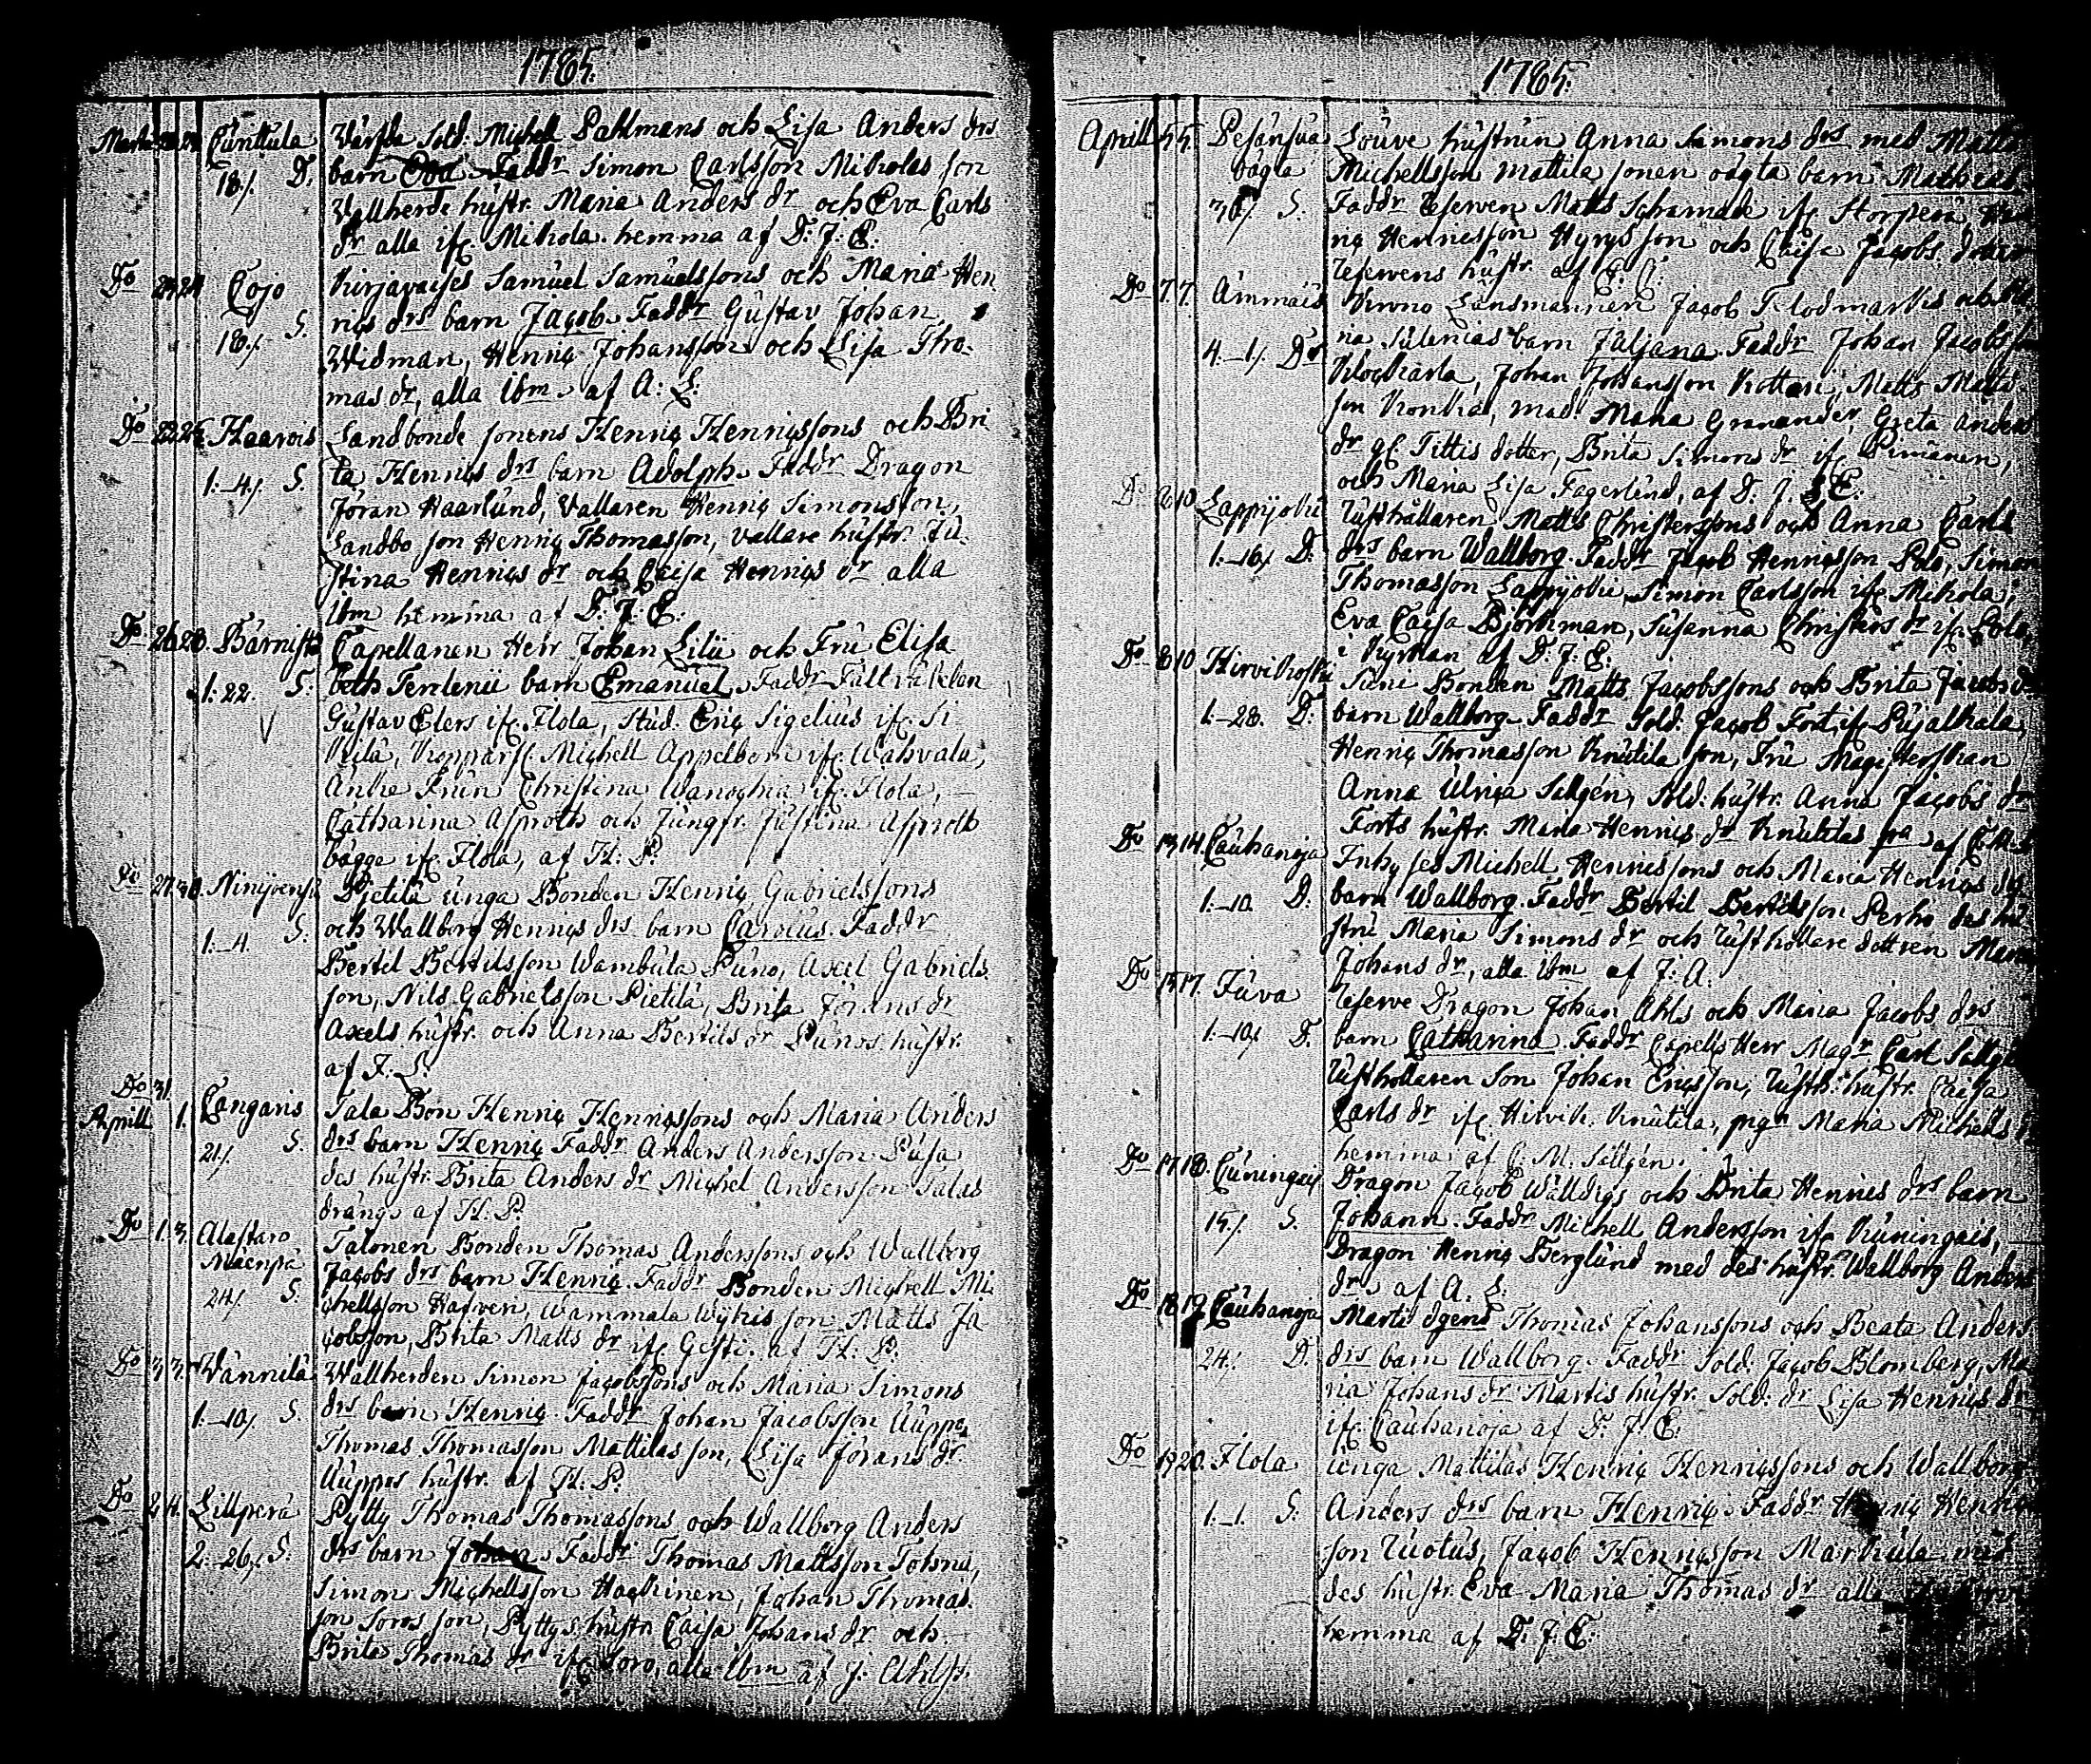 1785.
Martii 23 24 Cünttüla Värfda Sold. Michell Dahlmans och Lisa Anders drs
18/. D. barn Eva Faddr Simon Carlsson Mikolas son
Wallherde hüstr. Maria Anders dr och Eva Carls
dr alla ifr. Mikola. hemma af D. J. E.
Do 23 24 Cojo Kirjavaises Samüel Samüelssons och Maria Hen
18/. S. rics drs barn Jacob. Faddr Güstav Johan
Widman, Henric Johansson och Lisa Tho-
mas dr, alla ibm. af A: L:
Do Haarois Landbonde sonens Henric Henricssons och Bri
1.-4/. S. ta Henrics drs barn Adolph. Faddr Dragon
Jöran Haarlünd, Vallaren Henric Simonsson,
Landbo son Henric Thomasson, vallare hüstr. Jü-
stina Henrics dr och Caisa Henrics dr alla
ibm hemma af D. J. E.
Do 26 28. Bärnista Capellanen Herr Johan Lilii och Frü Elisa
1: 22. S: beth Terlenii barn Emanüel. Faddr Fält
Güstav Elers ifr. Flola, Stüd. Eric Sigelius ifr. Si
Michell Appelbom ifr. Wahvala,
Änke Früen Christina Wanochia ifr. Flola, —
Catharina Asproth och Jüngfr. Jüstina Asproth
bägge ifr. Flola, af H: P.
Do 27 30. Ninijoensü Pietilä ünga Bonden Henric Gabrielssons
1.-4. S: och Wallborg Henrics drs barn Carolus. Faddr
Bertil Bertilsson Wambüla Püno, Axel Gabriels
son, Nils Gabrielsson Pietilä, Brita Jörans dr
Axels hüstr. och Anna Bertils dr Pünos hüstr.
af J. S.
Do 31.
Aprill 1. Cangaris Tala Bon Henric Henricssons och Maria Anders
21/. S. drs barn Henric Faddr Anders Andersson Püsa
des hüstr. Brita Anders dr Michel Andersson Talas
dräng. af H. P.
Do 1. 3. Alastaro Talonen Bonden Thomas Anderssons och Wallborg
Mäenpä Jacobs drs barn Henric. Faddr Bonden Michell Mi
24/. S. chellsson Hafveri, Wammala Wijkis son Matts Ja
cobsson, Brita Matts dr ifr Gesti. af H. P.
Do 3 3. Vännilä Wallherden Simon Jacobssons och Maria Simons
1.-10/. S. drs barn Henric. Faddr Johan Jacobsson Uüppo,
Thomas Thomasson Mattilas son, Lisa Jörans dr
Uüppos hüstr. af H. P.
Do 2 4. Lillperä Pytty Thomas Thomassons och Wallborg Anders
2.-26/. S. drs barn Johan. Faddr Thomas Mattsson Tohni,
Simon Michellsson Hackinen, Johan Thomas
son Soros son, Pyttys hüstr. Caisa Johans dr och
Brita Thomas dr ifr Soro, alla ibm af J. Ahlst.
1785.
Aprill 5 5. Pesänsüa Souve hüstrün Anna Simons drs med Matts
oägta Michellsson Mattila sonen oägta barn Mathias.
36/. S. Faddr Reserven Matts Schramade ifr Storperä
ric Henricsson Hyrys son och Caisa Jacobs dotter
Reservens hüstr. af
Do 7 7. Ammäis Krono Länsmannen Jacob Flodmarks och
4.-1/. Dr ria barn Jüljana. Faddr Johan Jacobsson
Klockarla, Johan Johansson Kottari, Matts Matts
son mad. Maria Granander, Greta Anders
dr gl. Tittis dotter, Brita Simons dr ifr Pimänen,
och Maria Lisa Fagerlünd, af D. J. E:
Do 6 10. Lappijoki Rüsthållaren Matts Christerssons och Anna Carls
1.-16/. D. drs barn Wallborg. Faddr Jacob Henricsson Polo, Simon
Thomasson Lappijoki, Simon Carlsson ifr Mikola,
Eva Caisa Björkman, Süsanna Christers dr ifr Polo
i Kyrkan af D. J. E.
Do 8 10. Hirvikoski Süni Bonden Matts Jacobssons och Brita Jacobs dr
1.-28. D. barn Wallborg. Faddr Sold. Jacob Fort ifr Püjalkala,
Henric Thomasson Knütila son, Frü Magisterskan
Anna Ulrica Sallgén, Sold. hüstr. Anna Jacobs dr
Forts hüstr. Maria Henrics dr Knütilas
Do 13 14. Caühanoja Inhyses Michell Henricssons och Maria Henrics drs
1.-10. D. barn Wallborg. Faddr Bertil Bertilsson Perho des hü
strü Maria Simons dr och Rüsthollare dottren Maria
Johans dr, alla ibm af J: A.
Do 15 17. Jüva Reserve Dragon Johan Ahls och Maria Jacobs drs
1.-10/. D. barn Catharina. Faddr Capells Herr Magr Carl Sallgén
Rüsthollaren Son Johan Ericsson, Rüsth. hüstr. Caisa
Carls dr ifr. Hirvik. Knütila, pign Maria Michells
hemma af C. M. Sallgén.
Do 17 18. Cüningais Dragon Jacob Walldigs och Brita Henrics drs barn
15/. S. Johann. Faddr Michell Andersson ifr Küningais,
Dragon Henric Berglünd med des hüstr. Wallborg Anders
dr. af A. L.
Do 18 19. Caühanoja Marti ägens Thomas Johanssons och Beata Anders
24/. D. drs barn Wallborg. Faddr Sold. Jacob Blomberg, Ma
ria Johans dr Martis hüstr. Sold. dr Lisa Henrics dr
ifr. Caühanoja af D. J. E.
Do 19 20. Flola ünga Mattilas Henric Henricssons och Wallborg
1.-1. S. Anders drs barn Henric. Faddr Henric Henrics
son Rüotüs, Jacob Henricsson Markula med
des hüstr. Eva Maria Thomas dr alla
hemma af D. J. E.